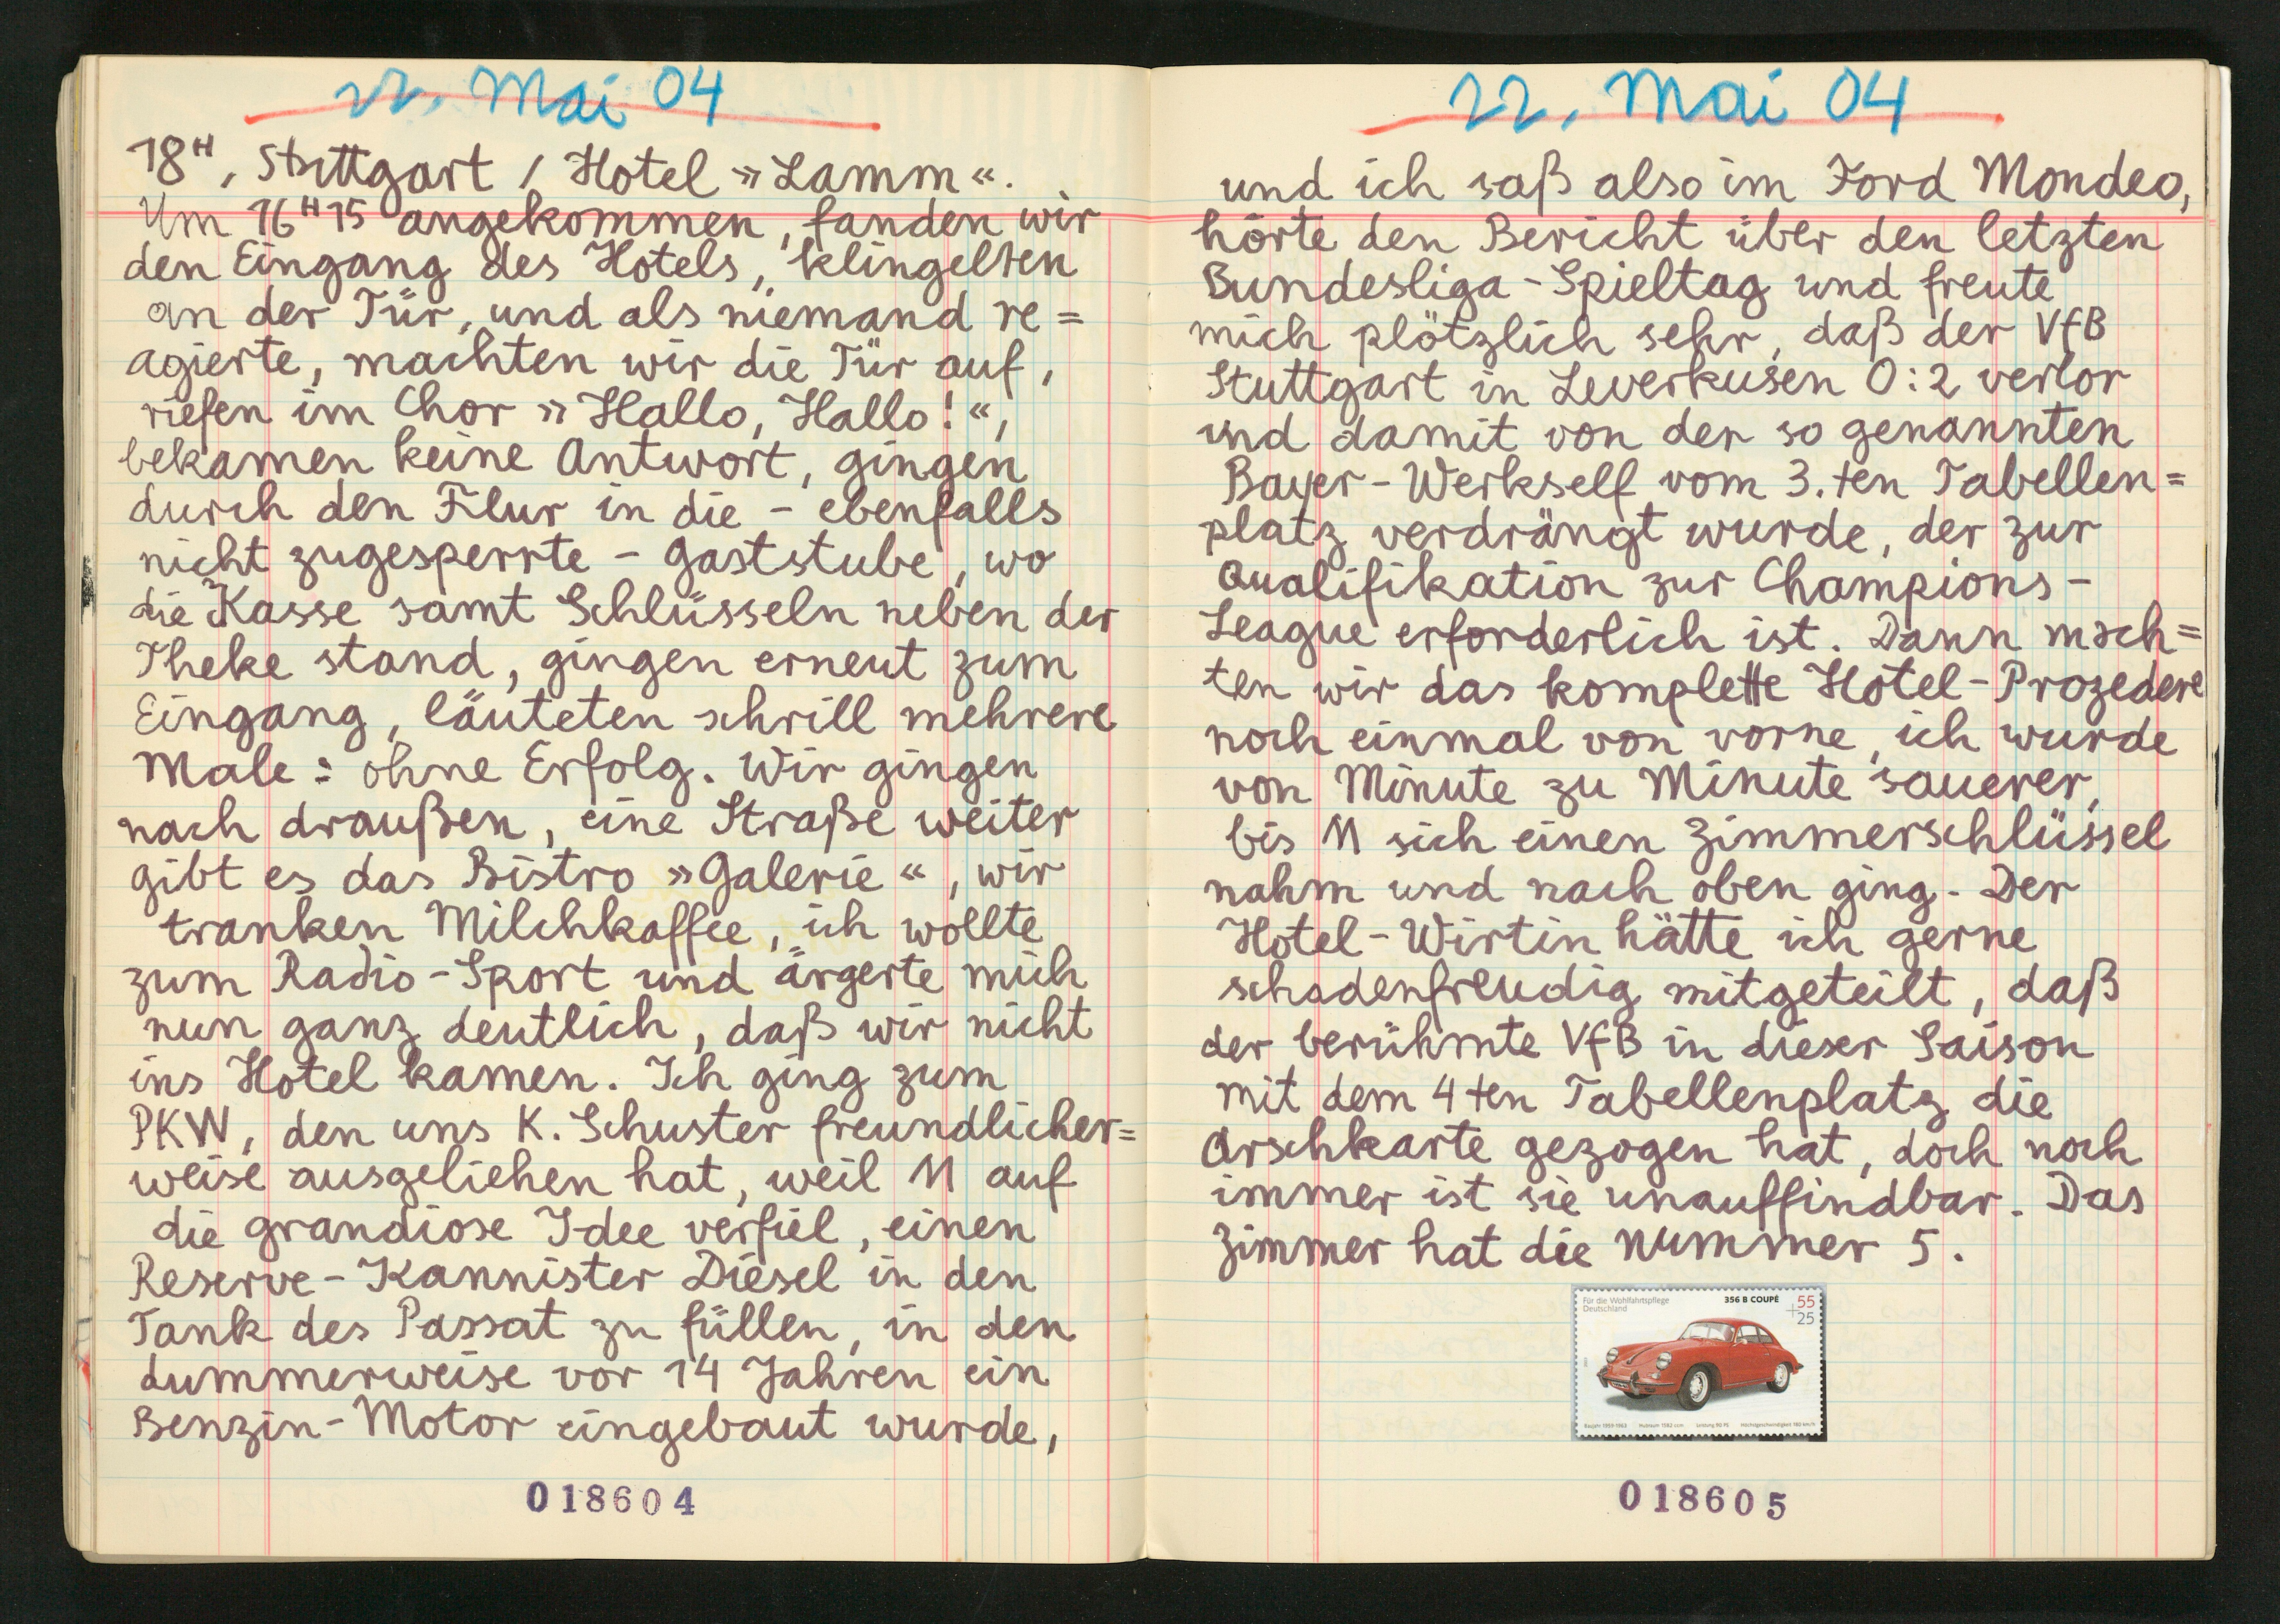 22. Mai 04
18ᴴ, Stuttgart / Hotel »Lamm«.
Um 16ᴴ15 angekommen, fanden wir
den Eingang des Hotels, klingelten
an der Tür, und als niemand re=
agierte, machten wir die Tür auf,
riefen im Chor »Hallo, Hallo!«,
bekamen keine Antwort, gingen
durch den Flur in die – ebenfalls
nicht zugesperrte – Gaststube, wo
die Kasse samt Schlüsseln neben der
Theke stand, gingen erneut zum
Eingang, läuteten schrill mehrere
Male: ohne Erfolg. Wir gingen
nach draußen, eine Straße weiter
gibt es das Bistro »Galerie«, wir
tranken Milchkaffee, ich wollte
zum Radio-Sport und ärgerte mich
nun ganz deutlich, daß wir nicht
ins Hotel kamen. Ich ging zum
PKW, den uns K. Schuster freundlicher=
weise ausgeliehen hat, weil M auf
die grandiose Idee verfiel, einen
Reserve-Kannister Diesel in den
Tank des Passat zu füllen, in den
dummerweise vor 14 Jahren ein
Benzin-Motor eingebaut wurde,
018604
22. Mai 04
und ich saß also im Ford Mondeo,
hörte den Bericht über den letzten
Bundesliga-Spieltag und freute
mich plötzlich sehr, daß der VfB
Stuttgart in Leverkusen 0:2 verlor
und damit von der so genannten
Bayer-Werkself vom 3.ten Tabellen=
platz verdrängt wurde, der zur
Qualifikation zur Champions-
League erforderlich ist. Dann mach=
ten wir das komplette Hotel-Prozedere
noch einmal von vorne, ich wurde
von Minute zu Minute sauerer,
bis M sich einen Zimmerschlüssel
nahm und nach oben ging. Der
Hotel-Wirtin hätte ich gerne
schadenfreudig mitgeteilt, daß
der berühmte VfB in dieser Saison
mit dem 4ten Tabellenplatz die
Arschkarte gezogen hat, doch noch
immer ist sie unauffindbar. Das
Zimmer hat die Nummer 5.
Für die Wohlfahrtspflege
Deutschland
356 B COUPÉ
55
+25
Baujahr 1959-1963 Hubraum 1582 ccm Leistung 90 PS Höchstgeschwindigkeit 180 km/h
018605